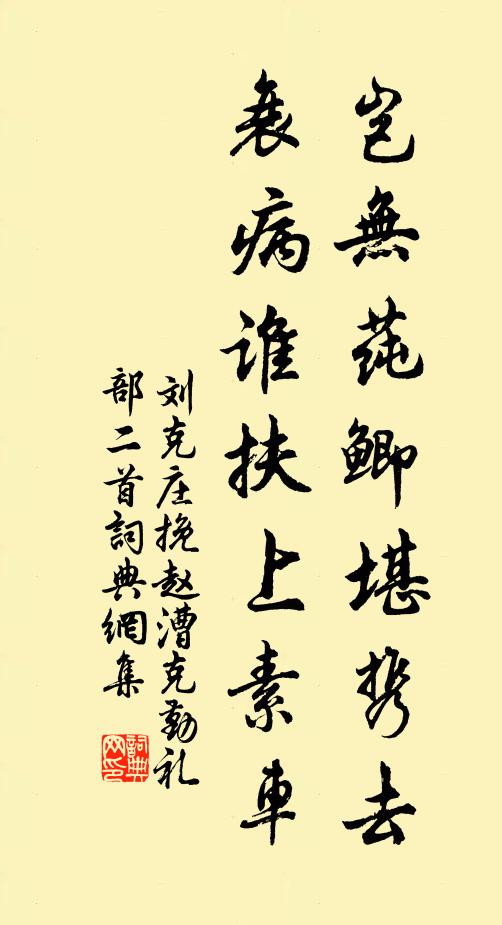 岂無莼鲫堪携去
衰病谁扶上素車
刘克庄挽赵漕克勤礼
部二首詞典網集
詞典網印